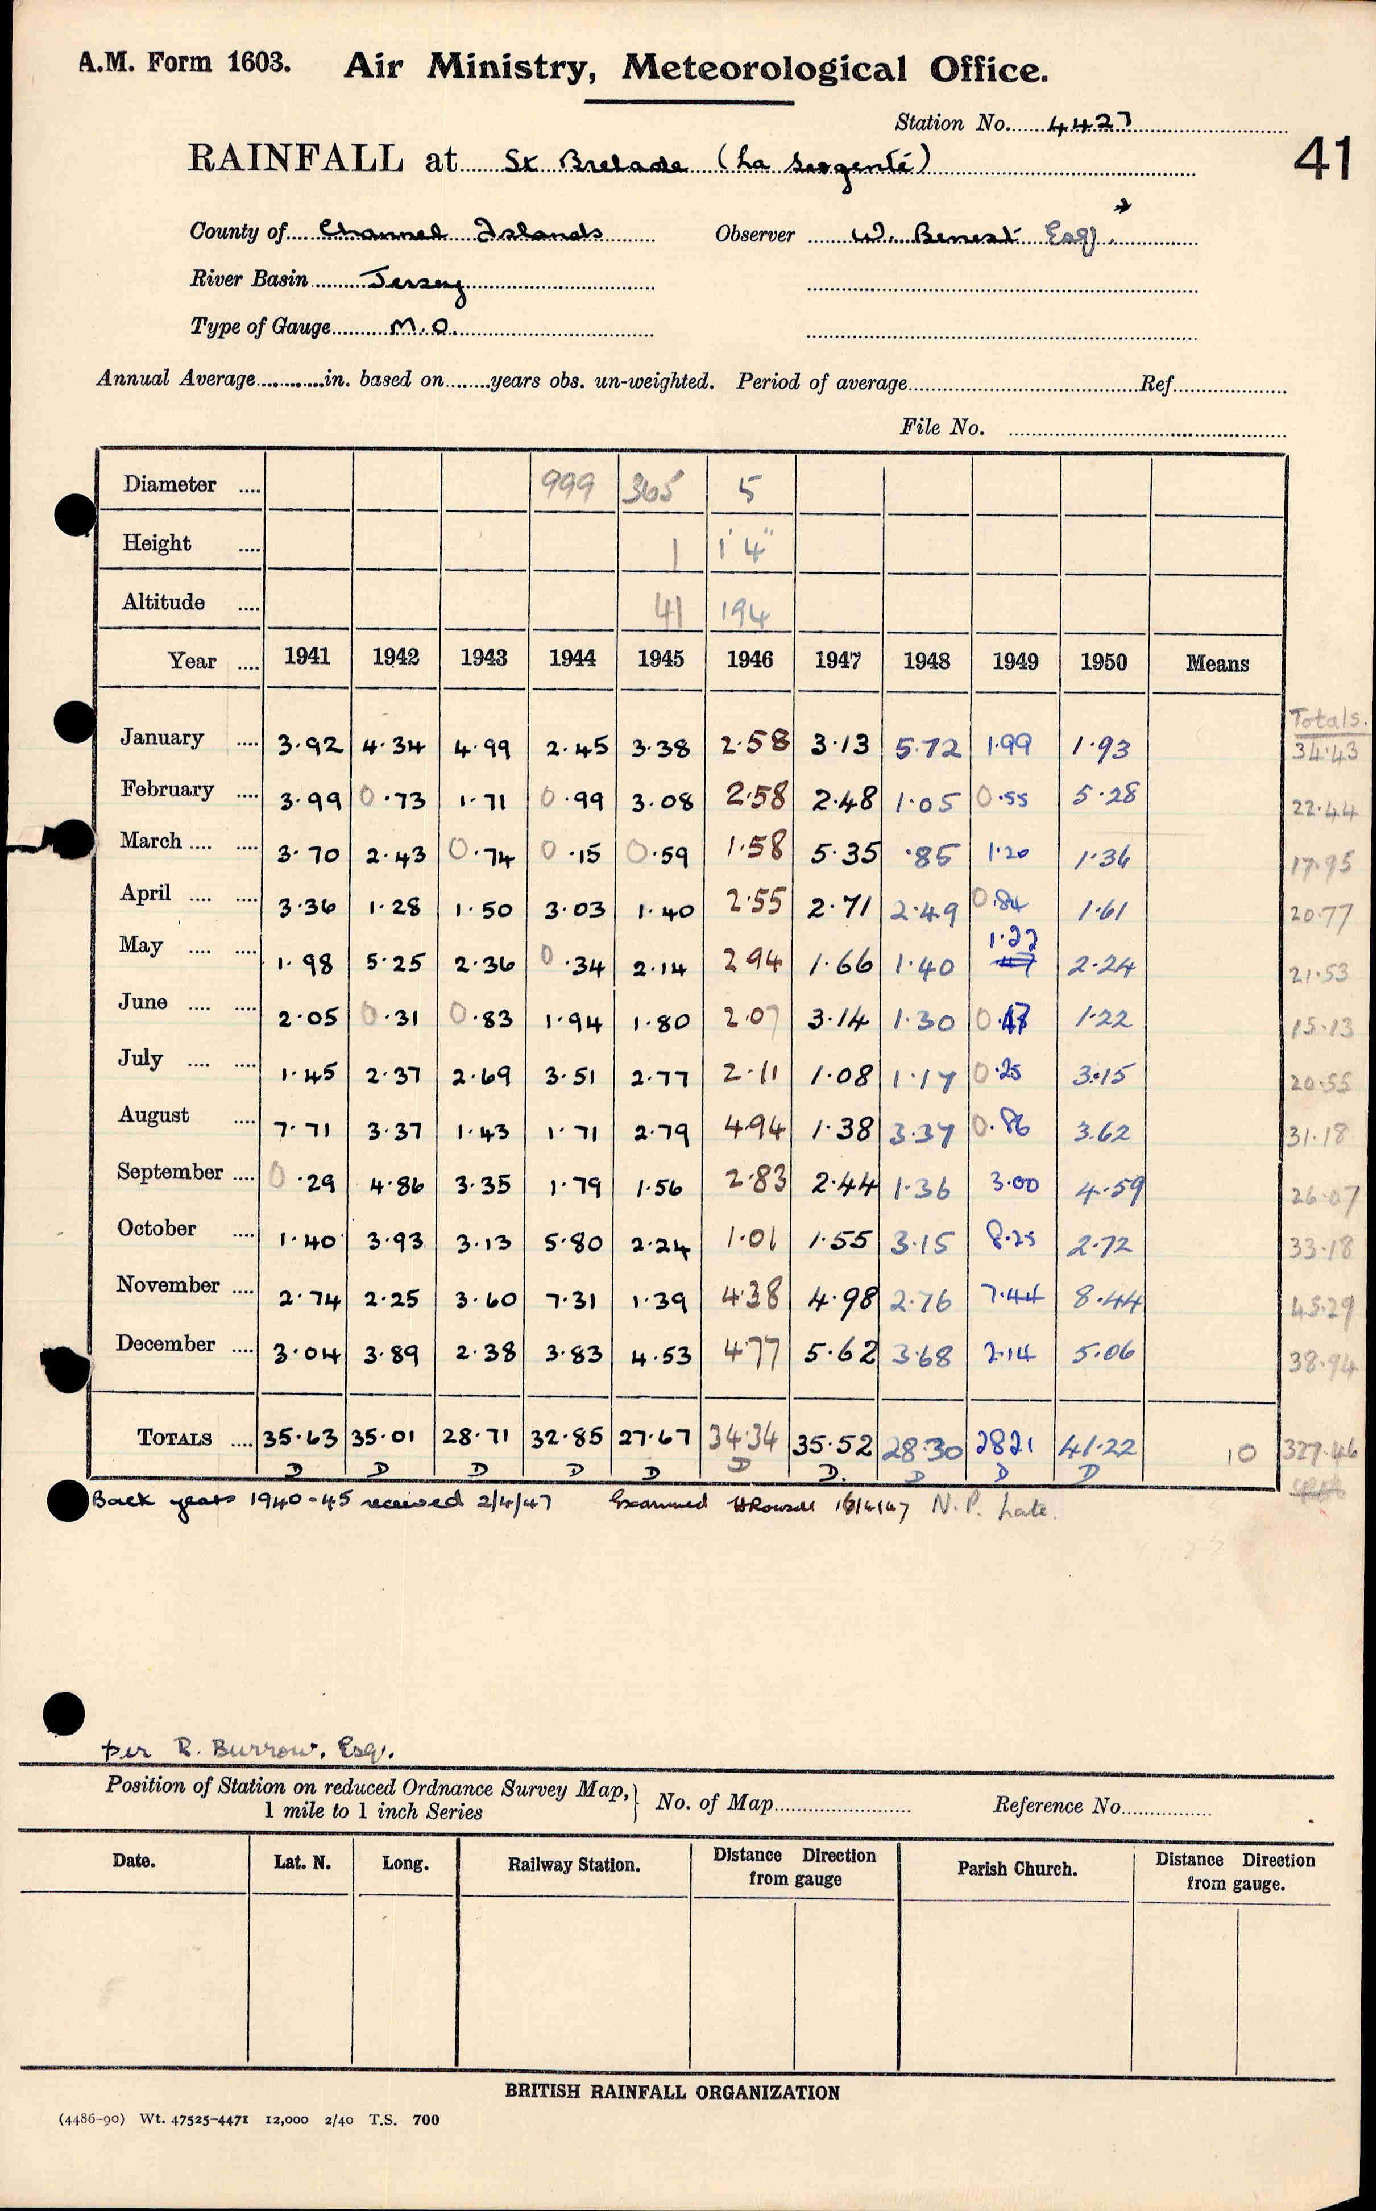 A.M. Form 1603. Air Ministry, Meteorological Office.
Station No. 4427
41
RAINFALL at St Brelade (La Sergenté)
County of Channel Islands Observer W. Benest Esq.
River Basin Jersey
Type of Gauge M.O.
Annual Average in. based on years obs. un-weighted. Period of average Ref
File No.
Diameter 999 365 5
Height 1 1' 4"
Altitude 41 194
Year 1941 1942 1943 1944 1945 1946 1947 1948 1949 1950 Means
Totals.
January 3.92 4.34 4.99 2.45 3.38 2.58 3.13 5.72 1.99 1.93 34.43
February 3.99 0.73 1.71 0.99 3.08 2.58 2.48 1.05 0.55 5.28 22.44
March 3.70 2.43 0.74 0.15 0.59 1.58 5.35 .85 1.20 1.36 17.95
April 3.36 1.28 1.50 3.03 1.40 2.55 2.71 2.49 0.84 1.61 20.77
May 1.98 5.25 2.36 0.34 2.14 2.94 1.66 1.40 1.22 2.24 21.53
June 2.05 0.31 0.83 1.94 1.80 2.07 3.14 1.30 0.47 1.22 15.13
July 1.45 2.37 2.69 3.51 2.77 2.11 1.08 1.17 0.25 3.15 20.55
August 7.71 3.37 1.43 1.71 2.79 4.94 1.38 3.37 0.86 3.62 31.18
September 0.29 4.86 3.35 1.79 1.56 2.83 2.44 1.36 3.00 4.59 26.07
October 1.40 3.93 3.13 5.80 2.24 1.01 1.55 3.15 8.25 2.72 33.18
November 2.74 2.25 3.60 7.31 1.39 4.38 4.98 2.76 7.44 8.44 45.29
December 3.04 3.89 2.38 3.83 4.53 4.77 5.62 3.68 2.14 5.06 38.94
TOTALS 35.63 35.01 28.71 32.85 27.67 34.34 35.52 28.30 28.21 41.22 10 327.46
D D D D D D D. D D D
Back years 1940-45 received 2/4/47 Examined 16/4/47 N.P. Late.
per R. Burrow, Esq.
Position of Station on reduced Ordnance Survey Map, No. of Map Reference No.
1 mile to 1 inch Series
Date. Lat. N. Long. Railway Station. Distance Direction from gauge Parish Church. Distance Direction from gauge.
BRITISH RAINFALL ORGANIZATION
(4486-90) Wt. 47525-4471 12,000 2/40 T.S. 700